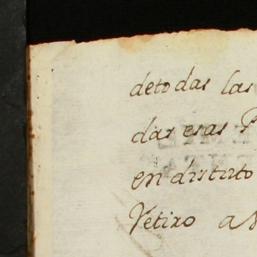 detodas las
das esas
en distrito
Vetiro a